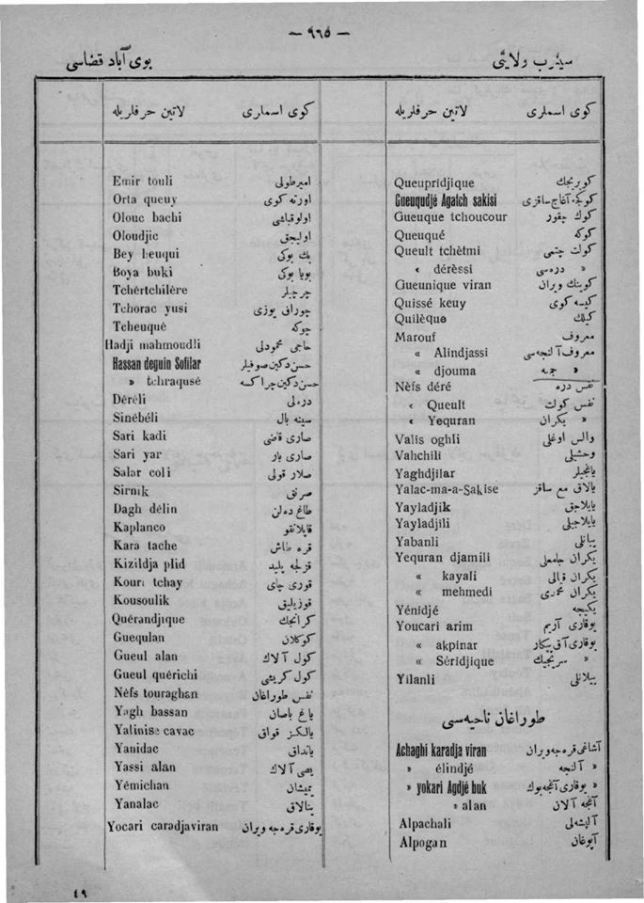 — ٩٦٥ —
سینوب ولایتی بوی آباد قضاسی
كوی اسملری لاتین حرفلریله
كوپریجك Queupridjique
كوكجه آغاج ساقزی Gueuqudjé Agatch sakisi
كوك چقور Gueuque tchoucour
كوكه Queuqué
كولت چتمی Queult tchètmi
» دره‌سی « dérèssi
كوینك ویران Gueunique viran
كیسه كوی Quissé keuy
كیلك Quilèque
معروف Marouf
معروف آلنجه‌سی « Alindjassi
» جمعه « djouma
نفس دره Nèfs déré
نفس كولت « Queult
» یكران « Yequran
والس اوغلی Valis oghli
وحشیلی Vahchili
یاغجیلر Yaghdjilar
یالاق مع ساقز Yalac-ma-a-Sakise
یایلاجق Yayladjik
یایلاجیلی Yayladjili
یبانلی Yabanli
یكران جامعلی Yequran djamili
یكران قیالی « kayali
یكران محمدی « mehmedi
یكیجه Yénidjé
یوقاری آریم Youcari arim
یوقاری آق پیكار « akpinar
» سریجیك « Séridjique
ییلانلی Yilanli
طوراغان ناحیه‌سی
آشاغی قره‌جه ویران Achaghi karadja viran
» آلنجه » élindjé
» یوقاری آغجه بوك » yokari Agdjé buk
آغجه آلان » alan
آلپشه‌لی Alpachali
آلپوغان Alpogan
كوی اسماری لاتین حرفلریله
امیرطولی Emir touli
اورته كوی Orta queuy
اولوقباشی Olouc bachi
اولیجق Oloudjic
بك بوكی Bey beuqui
بویا بوكی Boya buki
چرچیلر Tchértchilère
چوراق یوزی Tchorac yusi
چوكه Tcheuqué
حاجی محمودلی Hadji mahmoudli
حسن دكین صوفیلر Hassan deguin Sofilar
حسن دكین چراكسه » tchraqusé
دره‌لی Déréli
سینه بال Sinébéli
صاری قاضی Sari kadi
صاری یار Sari yar
صلار قولی Salar coli
صرنق Sirnik
طاغ ده‌لن Dagh délin
قاپلانقو Kaplanco
قره طاش Kara tache
قزلجه پلید Kizildja plid
قوری چای Kouri tchay
قوزیلیق Kousoulik
كرانجك Quérandjique
كوكلان Guequlan
كول آلان Gueul alan
كول كریشی Gueul quérichi
نفس طوراغان Néfs touraghan
یاغ باصان Yagh bassan
یالكز قواق Yalinise cavac
یانداق Yanidac
یصی آلان Yassi alan
یمیشان Yémichan
ینالاق Yanalac
یوقاری قره‌جه ویران Yocari caradjaviran
٤٩